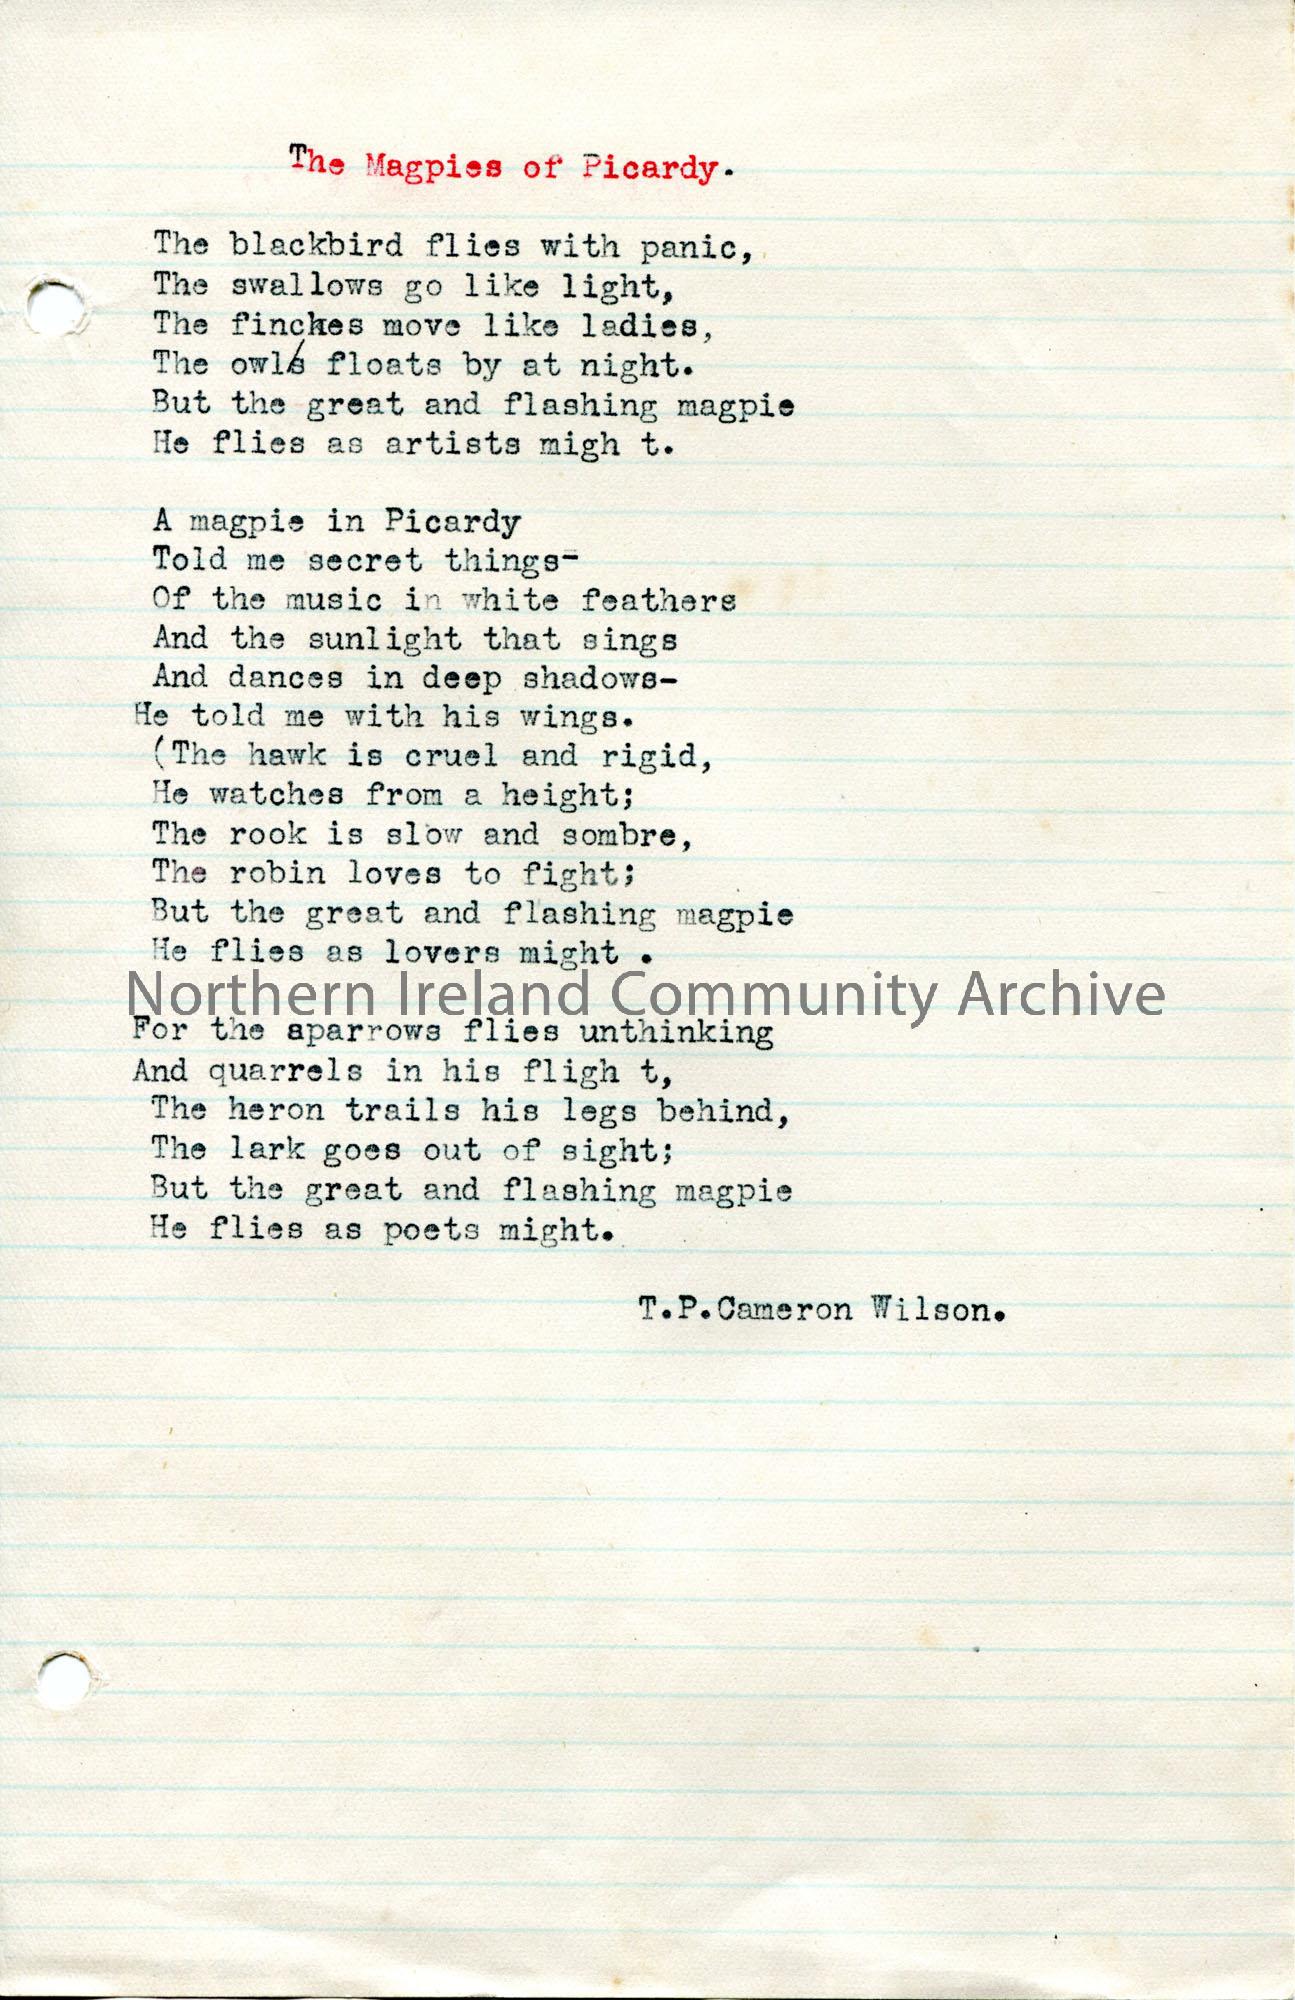 The Magpies of Picardy.
The blackbird flies with panic,
The swallows go like light,
The finches move like ladies,
The owls floats by at night.
But the great and flashing magpie
He flies as artists migh t.
A magpie in Picardy
Told me secret things-
Of the music in white feathers
And the sunlight that sings
And dances in deep shadows-
He told me with his wings.
(The hawk is cruel and rigid,
He watches from a height;
The rook is slow and sombre,
The robin loves to fight;
But the great and flashing magpie
He flies as lovers might .
Northern Ireland Community Archive
For the aparrows flies unthinking
And quarrels in his fligh t,
The heron trails his legs behind,
The lark goes out of sight;
But the great and flashing magpie
He flies as poets might.
T.P.Cameron Wilson.